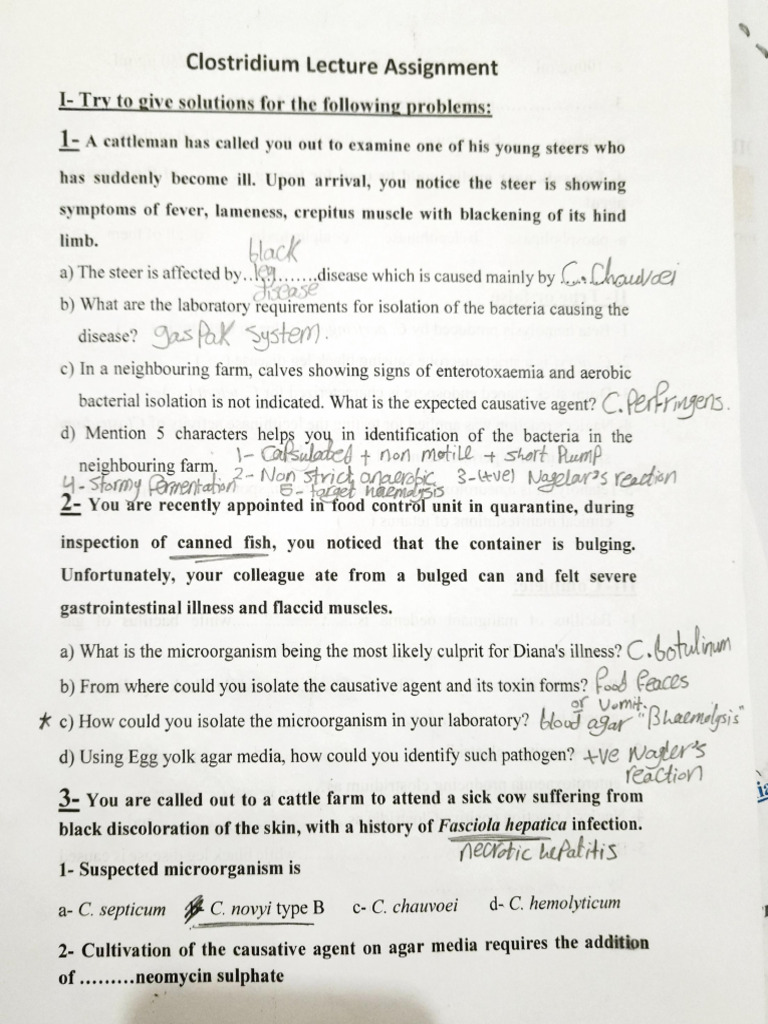 Clostridium Lecture Assignment
I- Try to give solutions for the following problems:
1- A cattleman has called you out to examine one of his young steers who
has suddenly become ill. Upon arrival, you notice the steer is showing
symptoms of fever, lameness, crepitus muscle with blackening of its hind
limb.
black
a) The steer is affected by..leg.......disease which is caused mainly by C. Chauvoei
disease
b) What are the laboratory requirements for isolation of the bacteria causing the
disease? gas Pak System.
c) In a neighbouring farm, calves showing signs of enterotoxaemia and aerobic
bacterial isolation is not indicated. What is the expected causative agent? C. Perfringens.
d) Mention 5 characters helps you in identification of the bacteria in the
1- Capsulated + non motile + short Plump
neighbouring farm. 2- Non strict anaerobic 3- (+ve) Nagelar's reaction
4- Stormy fermentation 5- target haemolysis
2- You are recently appointed in food control unit in quarantine, during
inspection of canned fish, you noticed that the container is bulging.
Unfortunately, your colleague ate from a bulged can and felt severe
gastrointestinal illness and flaccid muscles.
a) What is the microorganism being the most likely culprit for Diana's illness? C. botulinum
b) From where could you isolate the causative agent and its toxin forms? food feaces
or vomit.
* c) How could you isolate the microorganism in your laboratory? blood agar "β haemolysis"
d) Using Egg yolk agar media, how could you identify such pathogen? +ve Nagler's
reaction
3- You are called out to a cattle farm to attend a sick cow suffering from
black discoloration of the skin, with a history of Fasciola hepatica infection.
necrotic hepatitis
1- Suspected microorganism is
a- C. septicum C. novyi type B c- C. chauvoei d- C. hemolyticum
2- Cultivation of the causative agent on agar media requires the addition
of .........neomycin sulphate